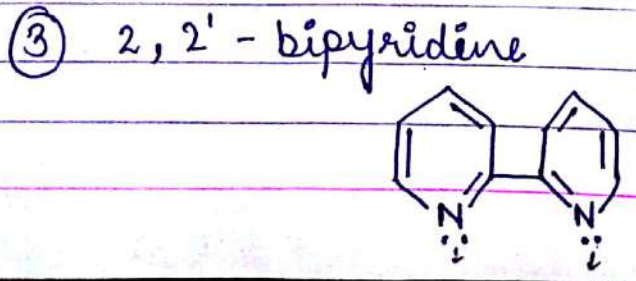 ③ 2, 2' - bipyridine
N N